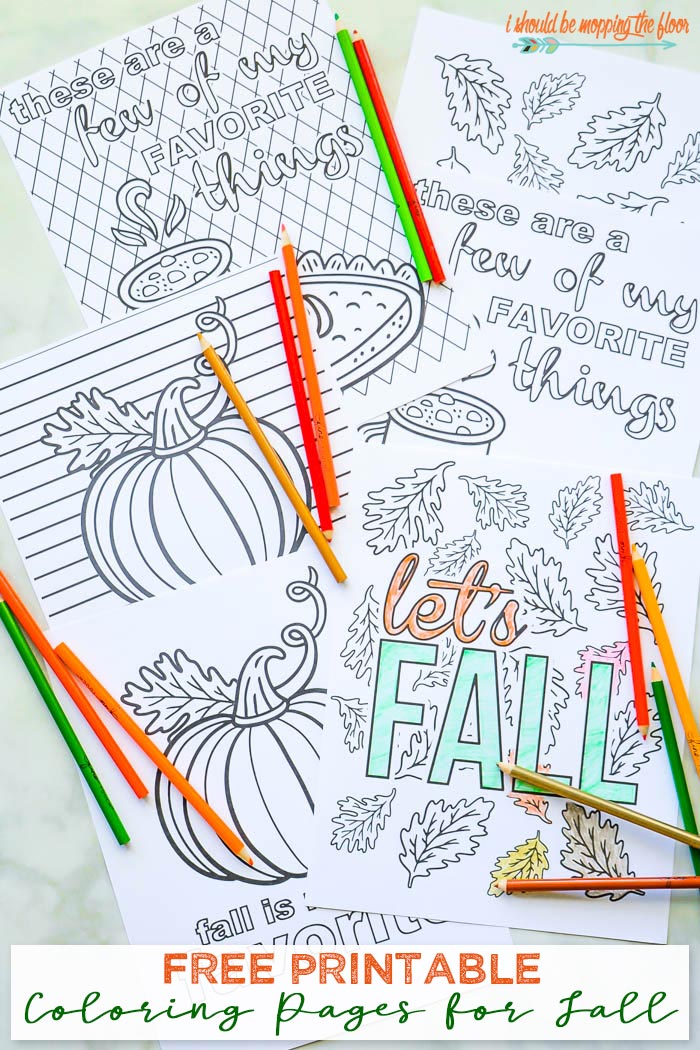 i should be mopping the floor
these are a
few of my
FAVORITE
things
these are a
few of my
FAVORITE
things
let's
FALL
fall is
favorite
FREE PRINTABLE
Coloring Pages for Fall